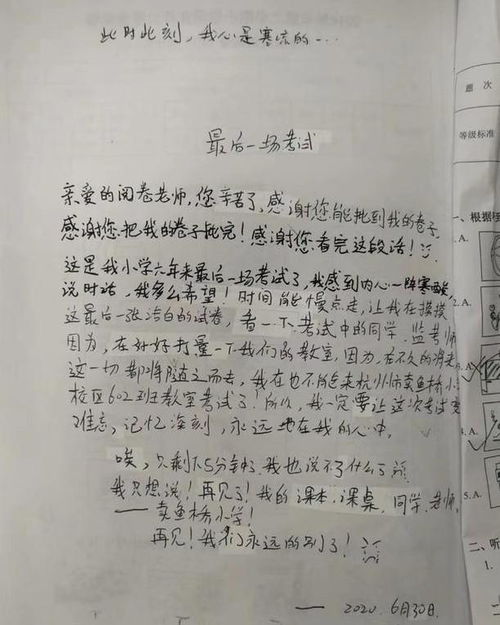 此时此刻，我心是寒凉的…
最后一场考试
亲爱的阅卷老师，您辛苦了，感谢您能批到我的卷子
感谢您把我的卷子批完！感谢您看完这段话！
这是我小学六年来最后一场考试了，我感到内心一阵寒酸
说时话，我多么希望！时间能慢点走，让我在摸摸
这最后一张洁白的试卷，看一下考试中的同学、监考师
因为，在好好打量一下我们的教室，因为，在不久的将来
这一切都将随之而去，我在也不能来杭州师卖鱼桥小
校区602班教室考试了！所以，我一定要让这次考试变
难忘，记忆深刻，永远地在我的心中。
唉，只剩下5分钟了，我也说不了什么了
我只想说！再见了！我的课本、课桌，同学、老师，
——卖鱼桥小学！
再见！我们永远的别了！
—— 2020. 6月30日.
题 次
等级标准
一、根据
1.A.
2.A.
3.A.
4.A.
5.A.
二、听
1.